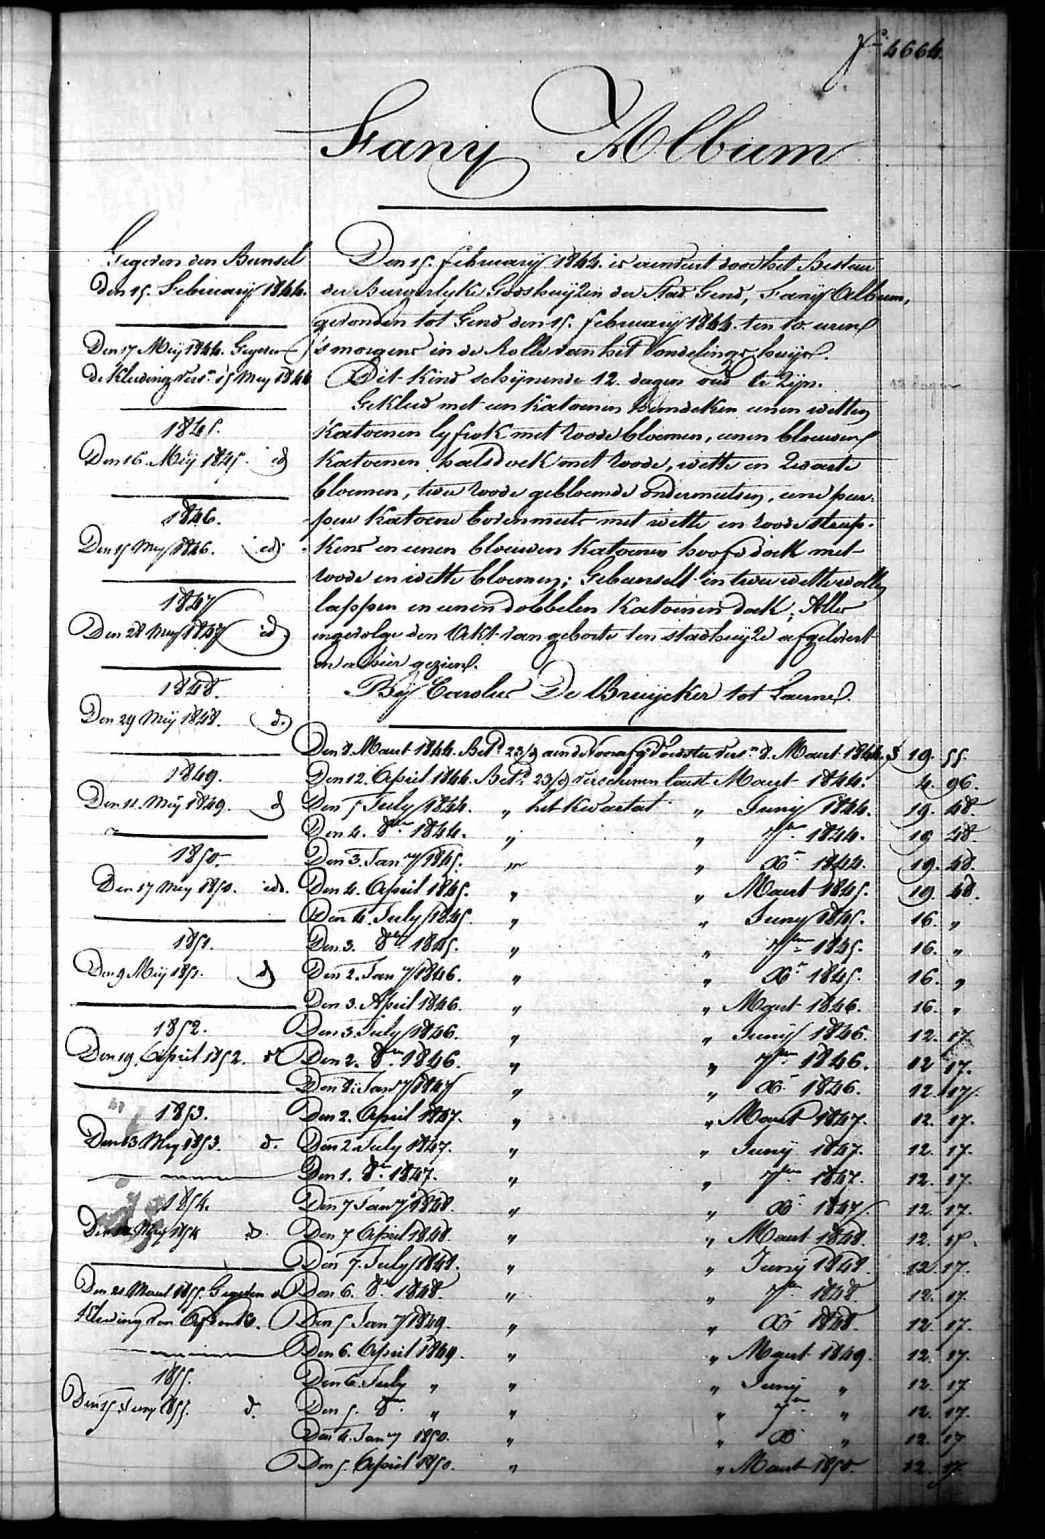 N° 4664.
Fany Album
Gegeven den Bunsel
den 15. Februarij 1844.
Den 17 Meij 1844. Gegeven
de Kleeding vers.n 15 Mey 1844
1845.
Den 16. Meij 1845. id
1846.
Den 15 Mey 1846. id.
1847
Den 28 Mey 1847 id
1848.
Den 29 Meij 1848. d.
1849.
Den 11. Meij 1849. d
1850.
Den 17 Mey 1850. id.
1851.
Den 9 Meij 1851. d
1852.
Den 19. April 1852. d
1853.
Den 13 Mey 1853. d.
1854.
Mey 1854 d.
Den 21 Maart 1855. Gegeven d
Kleeding van
1855.
Den 15 Juny 1855. d.
Den 15. februarij 1844. is aenveird door het Bestuer
der Burgerlyke Godshuijzen der Stad Gend, Fanij Album,
gevonden tot Gend den 15. februarij 1844. ten 10. uren
's morgens in de Rolle van het Vondelings huijs.
Dit Kind schijnende 12. dagen oud te zijn.
Gekleed met een Katoenen hemdeken eenen wetten
Katoenen lyfrok met roode bloemen, eenen blauwen
Katoenen halsdoek met roode, witte en zwarte
bloemen, twee roode gebloemde ondermutsen, eene peer-
pere Katoene bovenmuts met witte en roode streep-
kens en eenen blauwen Katoenen hoofddoek met
roode en witte bloemen; Gebunselt in twee witte wolle
lappen en eenen dobbelen Katoenen doek; Alles
ingevolge den Akt van geboorte ten stadhuijze afgeleverd
en alhier gezien.
Bij Carolus De Bruijcker tot Laerne.
Den 8. Maart 1844. Bet.d 23/d aen de vers.n 8. Maart 1844. f 19. 55.
Den 12. April 1844. Bet.d 23/d verschenen laest Maart 1844. 4. 96.
Den 5 July 1844. „ het kwartael „ Juny 1844. 19. 48.
Den 4. 8.br 1844. „ „ 7.br 1844. 19 48
Den 3. Jan.y 1845. „ „ Xb.r 1844. 19. 48.
Den 4. April 1845. „ „ Maart 1845. 19. 48.
Den 4. July 1845. „ „ Juny 1845. 16. „
Den 3. 8.br 1845. „ „ 7.ber 1845. 16. „
Den 2. Jan.y 1846. „ „ Xb.r 1845. 16. „
Den 3. April 1846. „ „ Maart 1846. 16. „
Den 3. July 1846. „ „ Junij 1846. 12. 17.
Den 2. 8.br 1846. „ „ 7.ber 1846. 12 17.
Den 8. Jan.y 1847 „ „ Xb.r 1846. 12. 17.
Den 2. April 1847. „ „ Maart 1847. 12. 17.
Den 2 July 1847. „ „ Junij 1847. 12. 17.
Den 1. 8.br 1847. „ „ 7.ber 1847. 12. 17.
Den 7 Jan.y 1848. „ „ Xb.r 1847. 12. 17.
Den 7 April 1848. „ „ Maart 1848. 12. 17.
Den 7. July 1848. „ „ Junij 1848. 12. 17.
Den 6. 8.br 1848. „ „ 7.br 1848. 12. 17.
Den 5 Jan.y 1849. „ „ Xb.r 1848. 12. 17.
Den 6. April 1849. „ „ Maart 1849. 12. 17.
Den 6. July „ „ „ Junij „ 12. 17
Den 5. 8.br „ „ „ 7.br „ 12. 17.
Den 4. Jan.y 1850. „ „ Xb.r „ 12. 17
Den 5. April 1850. „ „ Maart 1850. 12. 17.